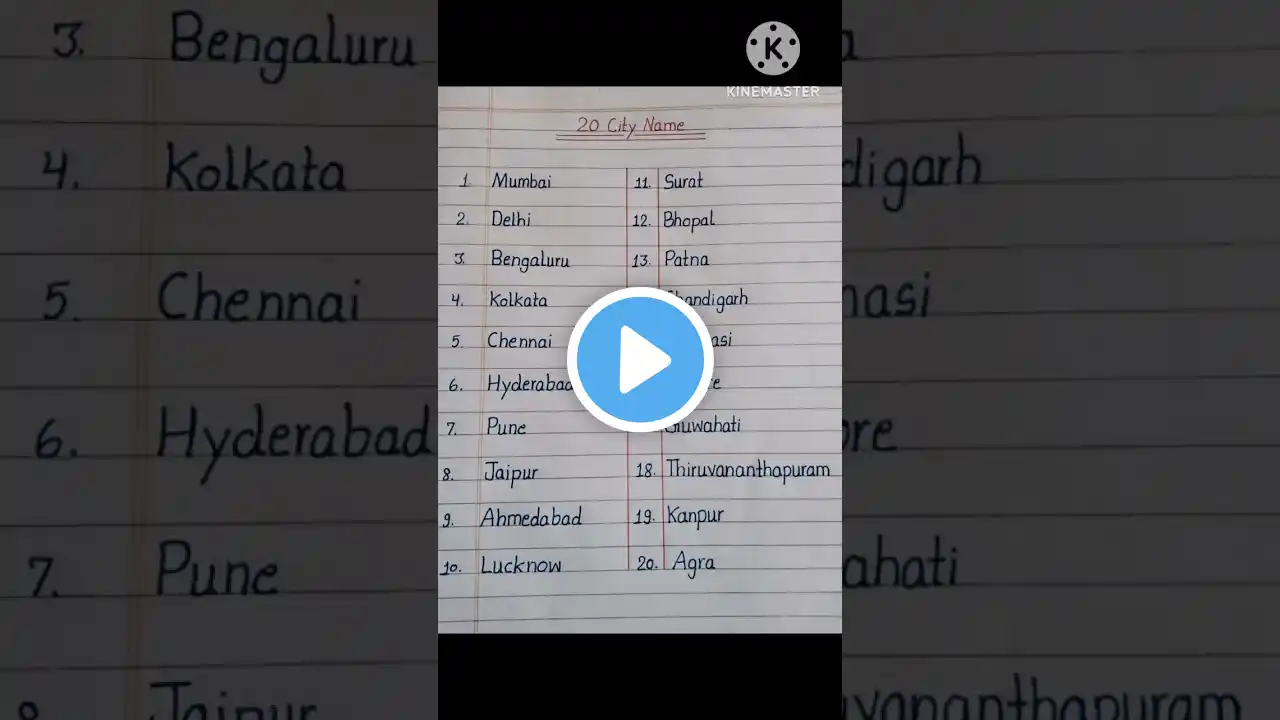 3. Bengaluru
4. Kolkata
5. Chennai
6. Hyderabad
7. Pune
Jaipur
KINEMASTER
20 City Name
1. Mumbai
2. Delhi
3. Bengaluru
4. Kolkata
5. Chennai
6. Hyderabad
7. Pune
8. Jaipur
9. Ahmedabad
10. Lucknow
11. Surat
12. Bhopal
13. Patna
Chandigarh
asi
re
Guwahati
18. Thiruvananthapuram
19. Kanpur
20. Agra
digarh
nasi
ore
ahati
vananthapuram